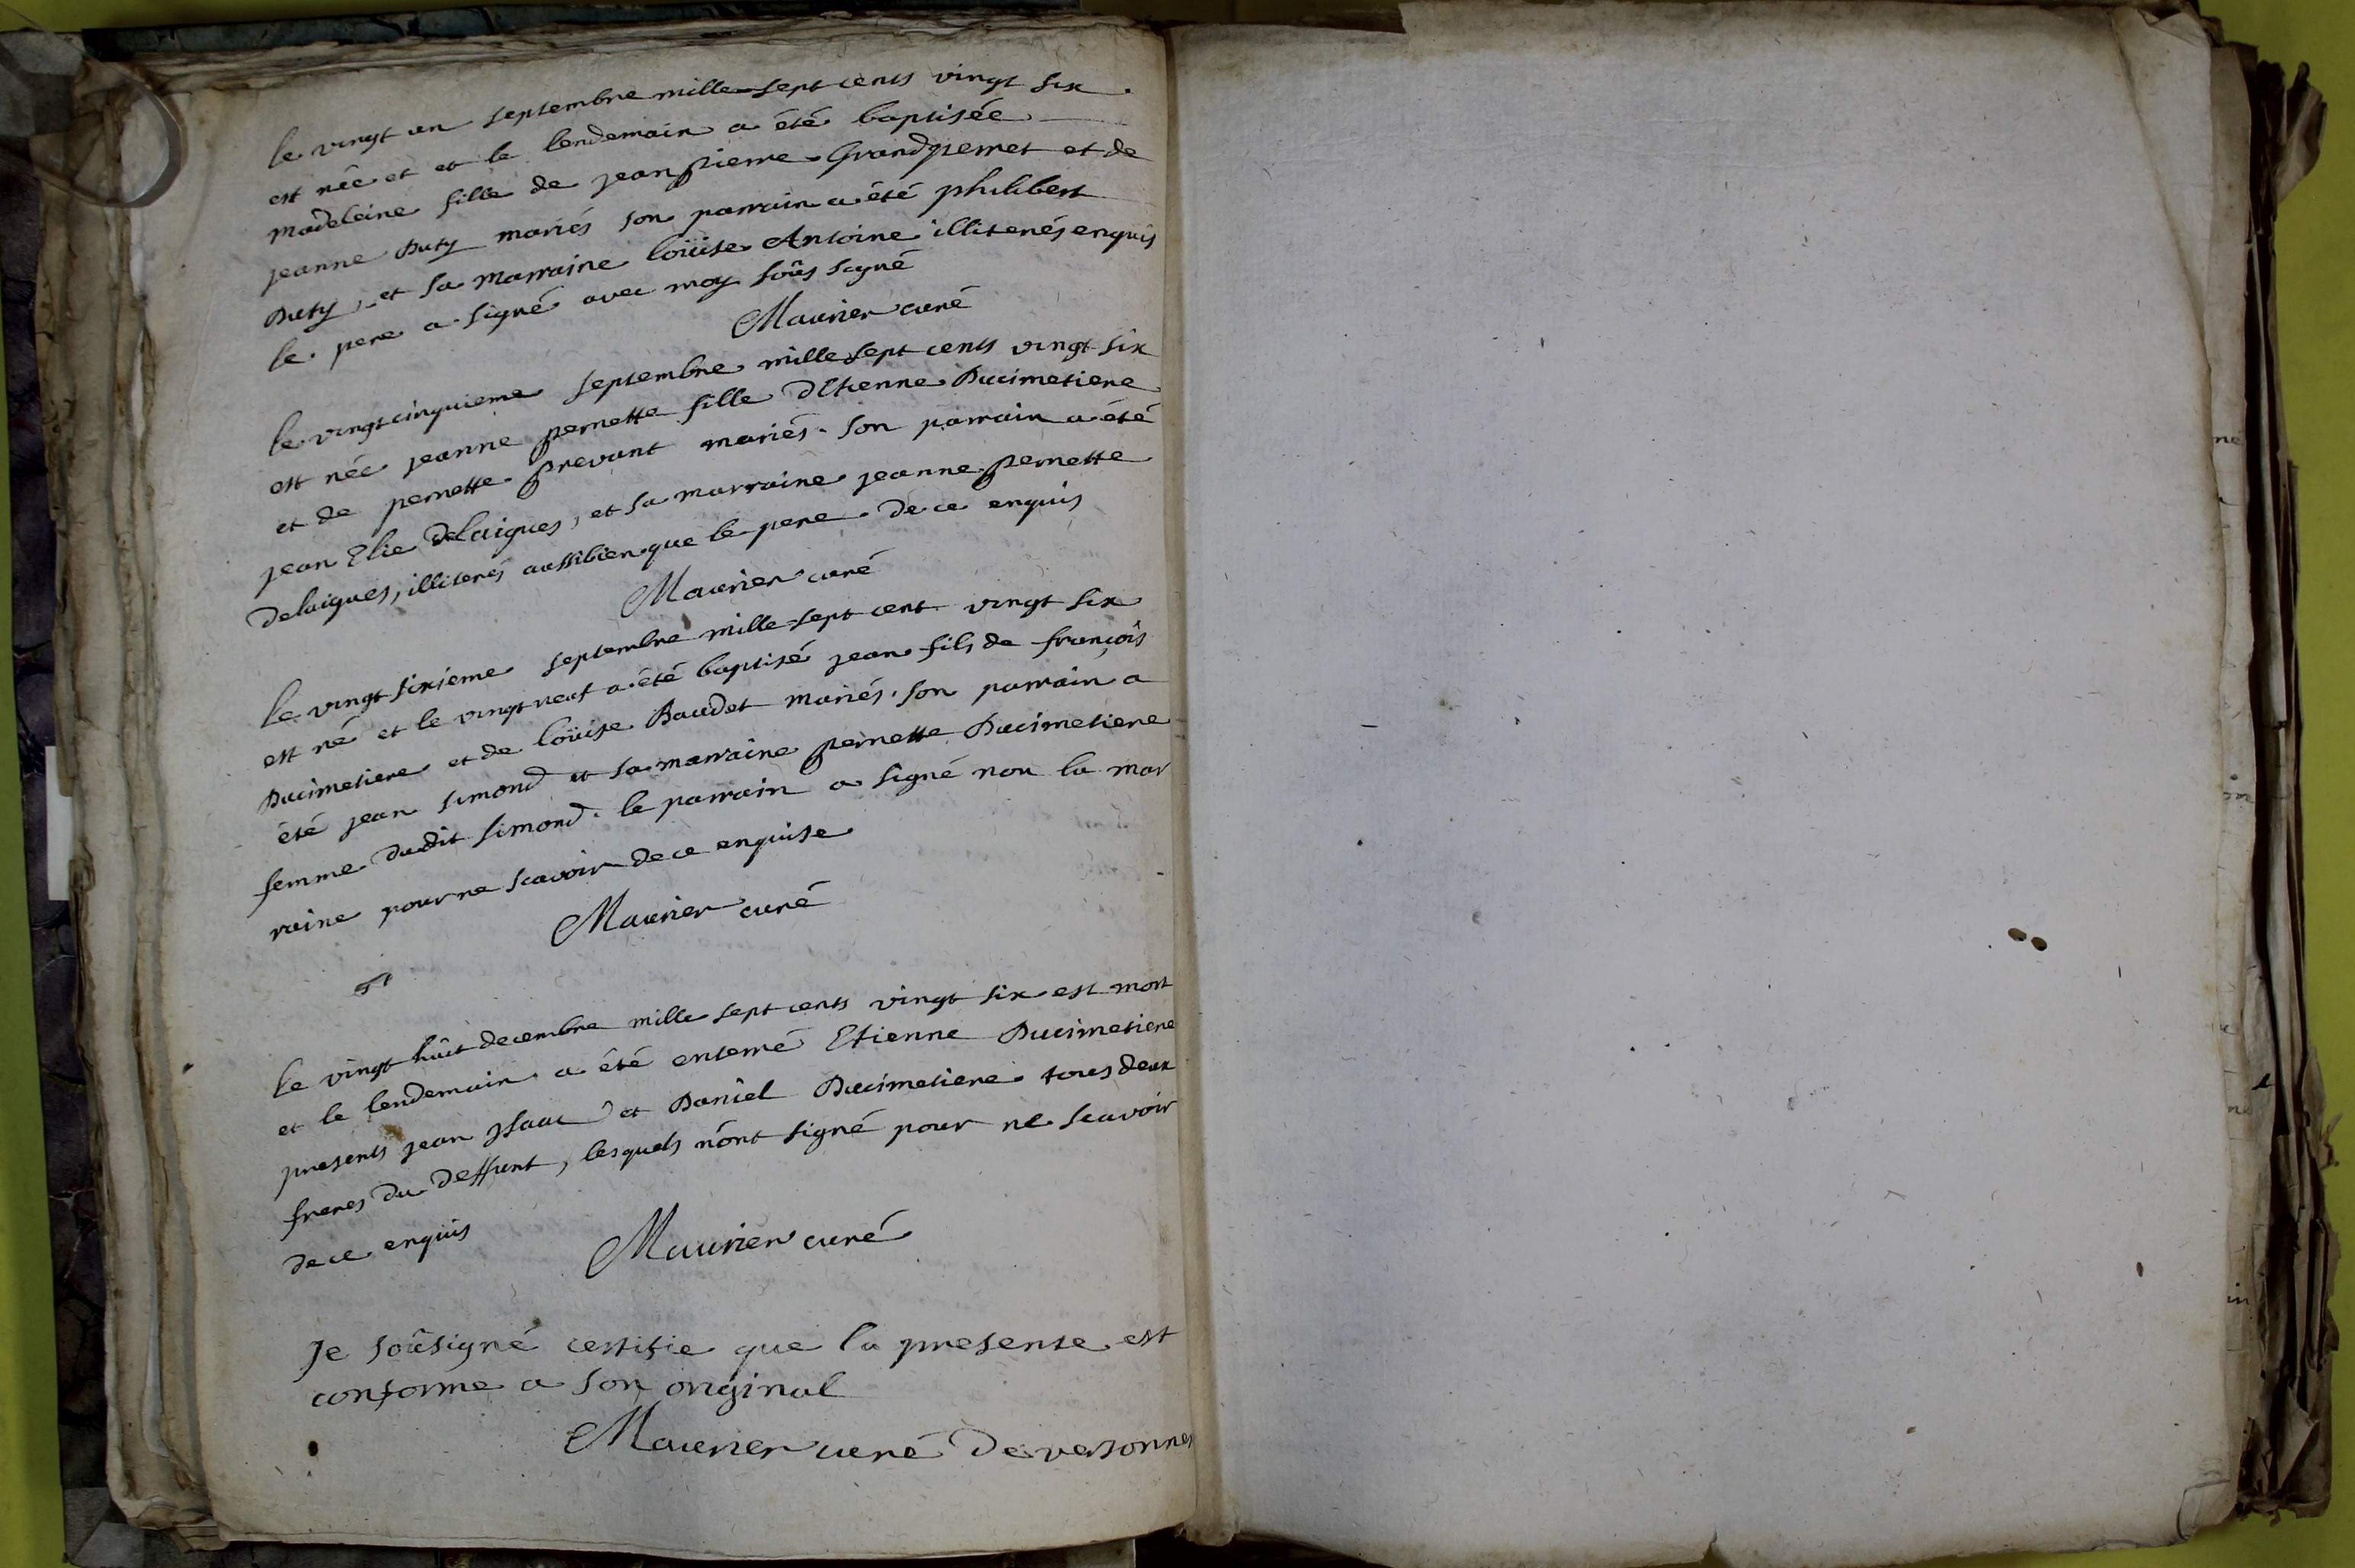 le vingt un septembre mille sept cents vingt six.
est née et et le lendemain a été baptisée
madeleine fille de jean pierre Grandperret et de
jeanne Duty mariés son parrain a été philibert
Duty, et sa marraine loüise Antoine illiterés enquis
le pere a signé avec moy soûs signé
Maurier curé
le vingt cinquieme septembre mille sept cents vingt six
est née jeanne pernette fille d'Etienne Ducimetiere
et de pernette prevant mariés. son parrain a été
jean Elie Delaigues, et sa marraine jeanne pernette
Delaigues, illiterés aussi bien que le pere de ce enquis
Maurier curé
le vingt sixieme septembre mille sept cent vingt six
est né et le vingt neuf a été baptisé jean fils de françois
Ducimetiere et de loüise Baudet mariés. son parrain a
été jean simond et sa marraine pernette Ducimetiere
femme dudit simond. le parrain a signé non la mar
raine pour ne scavoir de ce enquise
Maurier curé
le vingt huit decembre mille sept cents vingt six est mort
et le lendemain a été enterré Etienne Ducimetiere
presents jean jsaac et Daniel Ducimetiere tous deux
freres du deffunt, lesquels n'ont signé pour ne scavoir
de ce enquis
Maurier curé
Je soûsigné certifie que la presente est
conforme a son original
Maurier curé de versonnex